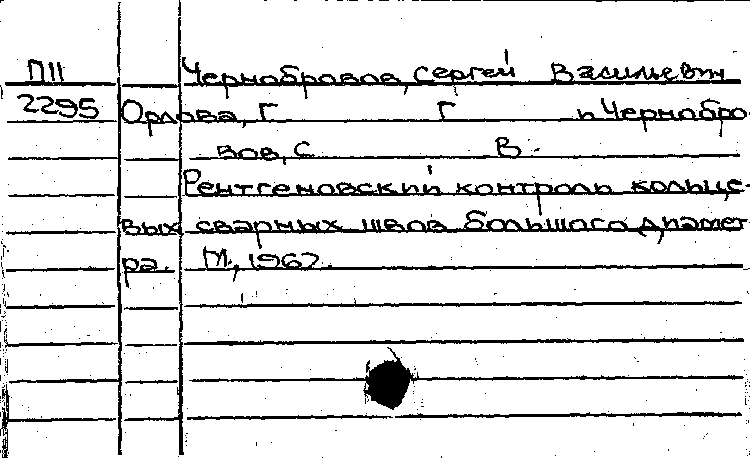 П11 Чернобровов, Сергей Васильевич
2295 Орлова, Г Г и Чернобро-
вов, С В.
Рентгеновский контроль кольце-
вых сварных швов большого диамет
ра. М., 1967.